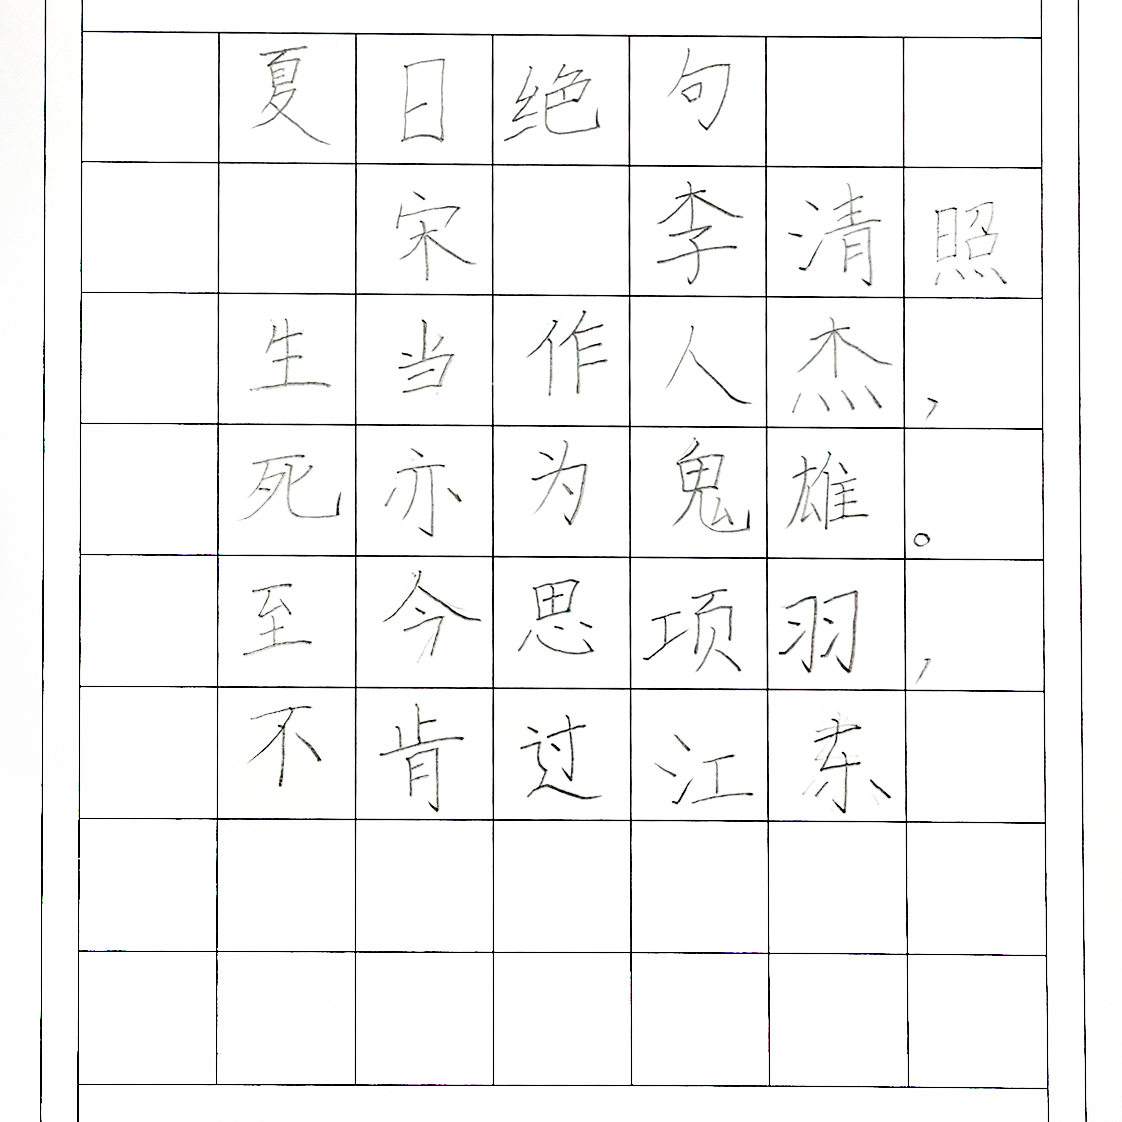 夏日绝句
宋 李清照
生当作人杰，
死亦为鬼雄。
至今思项羽，
不肯过江东